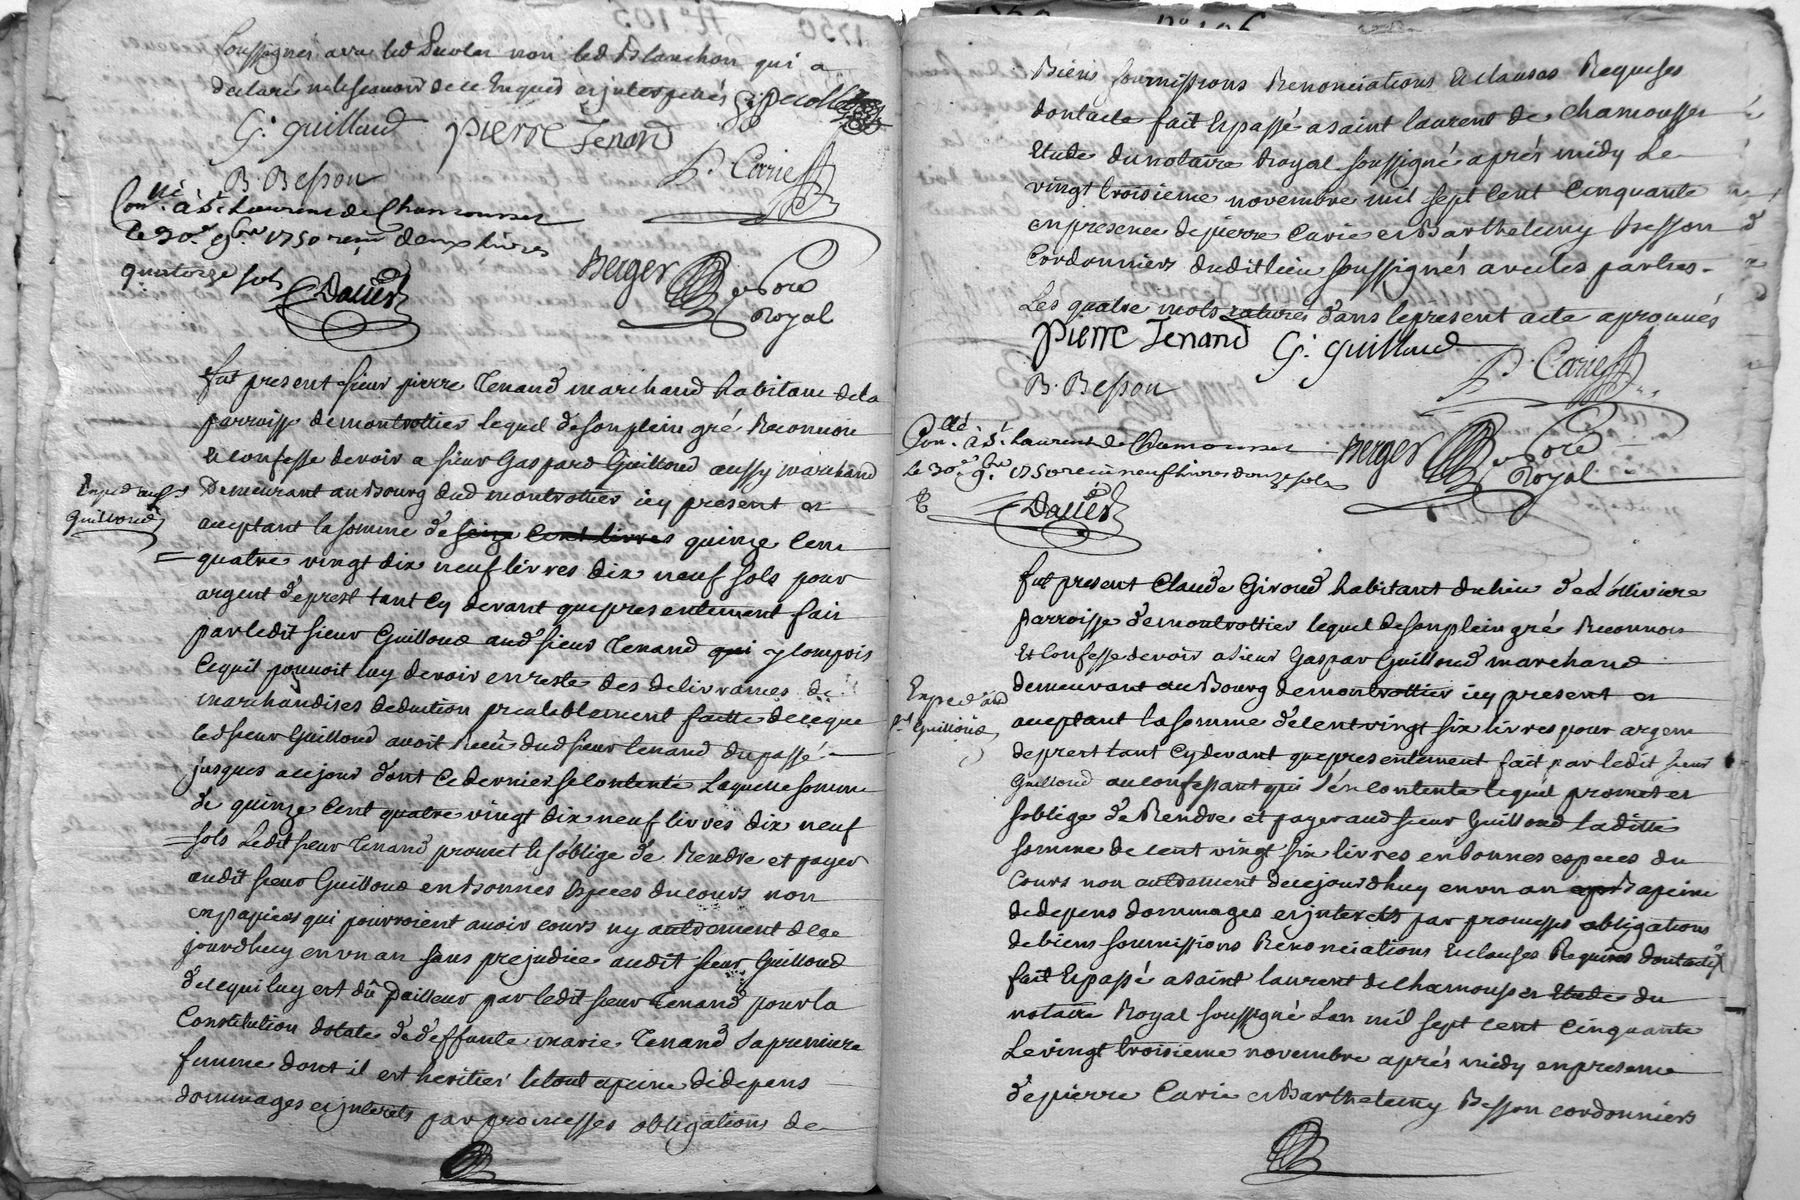 soussignés avec led Decoles non led Blanchon qui a
declaré ne le scavoir de ce Enquis et jnterpellés
G: guilloud pierre Tenand
B. Besson P. Carie
Con.llé à St. Laurent de Chamousset
le 30e. 9bre 1750 receu deux livres
quatorze sols Berger no.re
Royal
fut present sieur pierre Tenand marchand habitant de la
parroisse de montrottier lequel de son plein gré Reconnoit
et confesse devoir a sieur Gaspard Guilloud aussy marchand
Demeurant au Bourg dud montrottier icy present et
Guilloud
aceptant la somme de seize cent livres quinze cent
quatre vingt dix neuf livres dix neuf sols pour
argent de prest tant cy devant que presentement fait
par ledit sieur Guilloud aud sieur Tenand qui y compris
ce quil pouvoit luy devoir en reste des delivrances de
marchandises deduction prealablement faitte de ce que
led sieur Guilloud avoit receu dud sieur tenand du passé
jusques a ce jour dont ce dernier se contente Laquelle somme
de quinze cent quatre vingt dix neuf livres dix neuf
sols Ledit sieur Tenand promet et s'oblige de Rendre et payer
audit sieur Guilloud en bonnes Especes du cours non
en papiers qui pourroient avoir cours ny autrement de ce
jourdhuy en un an sans prejudice audit sieur Guilloud
de ce qui luy est dû dailleur par ledit sieur Tenand pour la
Constitution dotale de deffunte marie Tenand sa premiere
femme dont il est heritier le tout a peine de depens
dommages et jnterets par promesses obligations de
Biens soumissions Renonciations et clauses Requises
dont acte fait et passé a saint laurent de chamousset
etude du notaire Royal soussigné aprés midy le
vingt troisieme novembre mil sept cent cinquante
en presence de pierre Carie et Barthelemy Besson
Cordonniers dudit lieu soussignés avec les parties.
Les quatre mots raturés dans le present acte aprouvés
pierre Tenand G: guilloud
B. Besson P. Carie
Con.llé à St. Laurent de Chamousset Berger no.re
le 30e. 9bre 1750 receu neuf livres douze sols Royal
fut present Claude Giroud habitant du lieu de L'olliviere
parroisse de montrottier lequel de son plein gré Reconnoit
et confesse devoir a sieur Gaspar Guilloud marchand
demeurant au Bourg de montrottier icy present et
Guilloud
aceptant la somme de cent vingt six livres pour argent
de prest tant cy devant que presentement fait par ledit sieur
Guilloud au confessant qui s'en contente lequel promet et
soblige de Rendre et payer aud sieur Guilloud laditte
somme de cent vingt six livres en bonnes especes du
cours non autrement de ce jourdhuy en un an a peine
de depens dommages et jnterets par promesses obligations
de biens soumissions Renonciations et clauses Requises dont acte
fait et passé a saint laurent de chamousset etude du
notaire Royal soussigné L'an mil sept cent cinquante
Le vingt troisieme novembre aprés midy en presence
de pierre Carie et Barthelemy Besson cordonniers